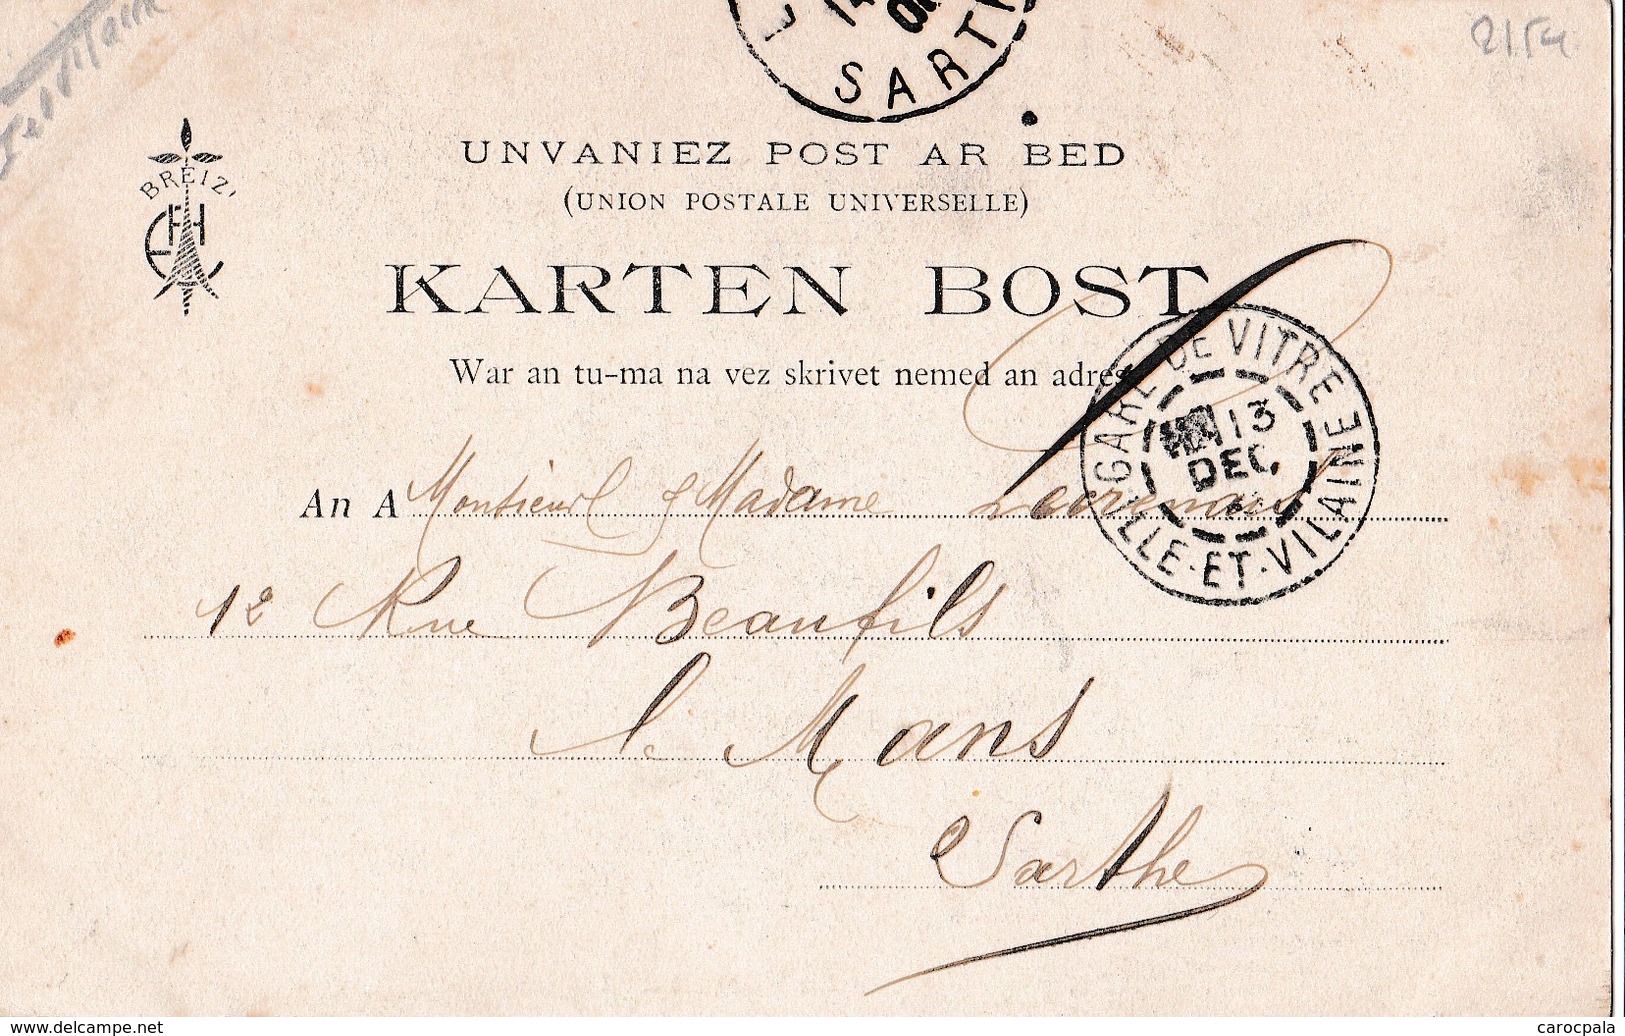 SARTH
2154
BREIZ'
UNVANIEZ POST AR BED
(UNION POSTALE UNIVERSELLE)
KARTEN BOST
War an tu-ma na vez skrivet nemed an adres
GARE DE VITRE
13
DEC
ILLE-ET-VILAINE
An A Monsieur & Madame
12 Rue Beaufils
le Mans
Sarthe
www.delcampe.net
carocpala